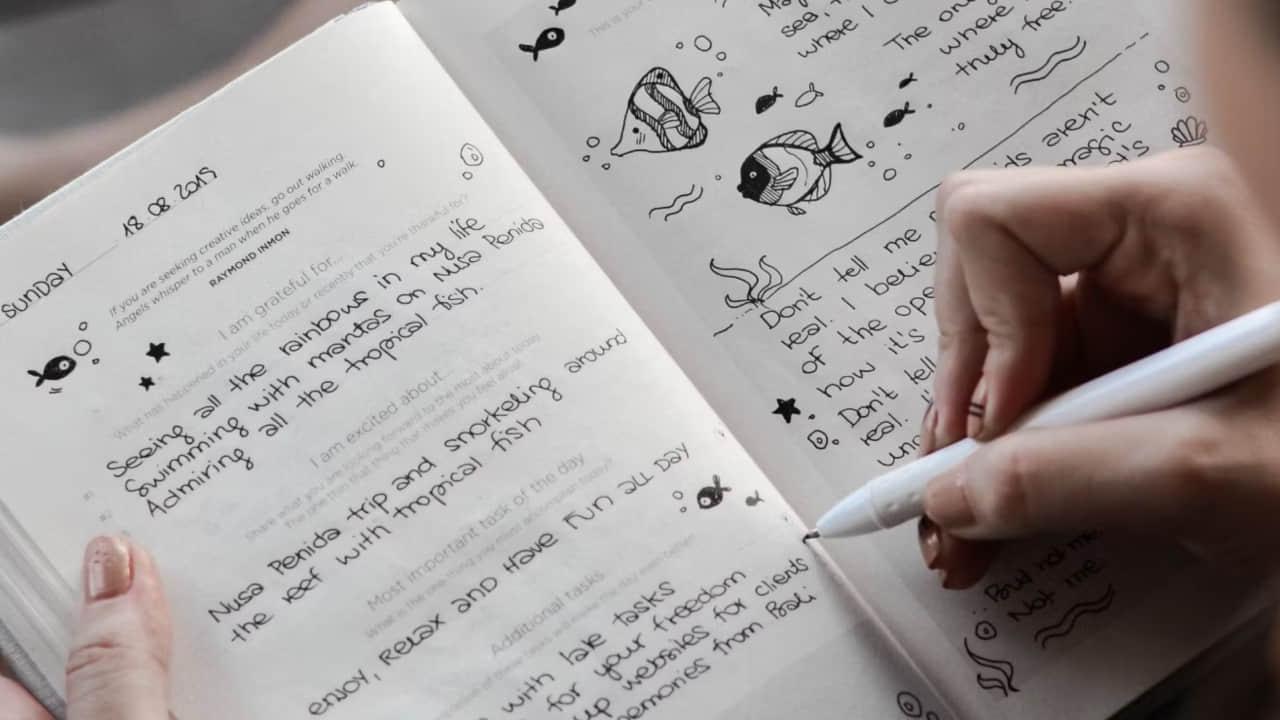 SUNDAY 18.08.2019
If you are seeking creative ideas, go out walking.
Angels whisper to a man when he goes for a walk.
RAYMOND INMON
I am grateful for...
What has happened in your life today or recently that you're thankful for?
Seeing all the rainbows in my life
Swimming with mantas on Nusa Penida
Admiring all the tropical fish.
I am excited about...
Share what you are looking forward to the most about today
The one thing that makes you feel great
Nusa Penida trip and snorkeling around
the reef with tropical fish
Most important task of the day
What is the one thing you must accomplish today?
ENJOY, RELAX AND HAVE FUN ALL DAY
Additional tasks
will make the day even better
with late tasks
for your freedom
websites for clients
memories from Bali
This is your
sea,
where I
The
where
truly free.
aren't
magic
Don't tell me
real. I
of the
how it's
Don't tell
real.
But not me.
Not me.